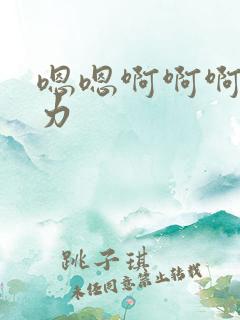 嗯嗯啊啊啊
力
跳子琪
未经同意禁止转载